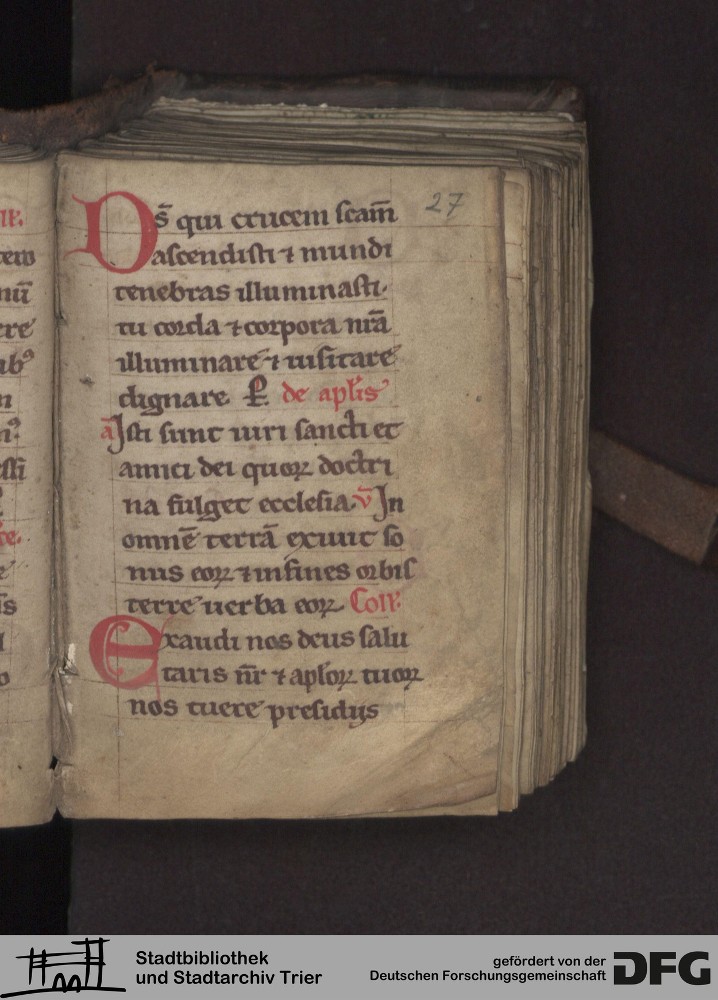 27
D s̄ qui crucem scām
ascendisti ⁊ mundi
tenebras illuminasti.
tu corda ⁊ corpora nr̄a
illuminare ⁊ uisitare
dignare P̱ de apl̄is
ā Isti sunt uiri sancti et
amici dei quoꝝ doctri
na fulget ecclesia. v̄ In
omnē terrā exiuit so
nus eoꝝ ⁊ in fines orbis
terre uerba eoꝝ Coll'.
Exaudi nos deus salu
taris nr̄ ⁊ apl̄oꝝ tuoꝝ
nos tuere presidijs
Stadtbibliothek
und Stadtarchiv Trier
gefördert von der
Deutschen Forschungsgemeinschaft
DFG